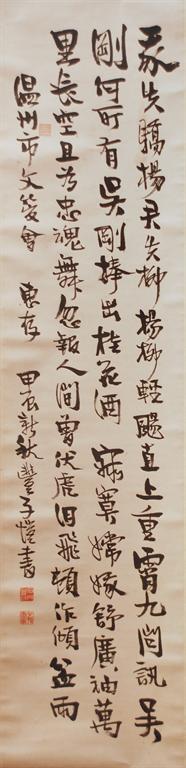 我失驕楊君失柳楊柳輕颺直上重霄九問訊吳
剛何所有吳剛捧出桂花酒 寂寞嫦娥舒廣袖萬
里長空且为忠魂舞忽報人間曾伏虎泪飛頓作傾盆雨
温州市文會 惠存 甲辰新秋豐子愷書